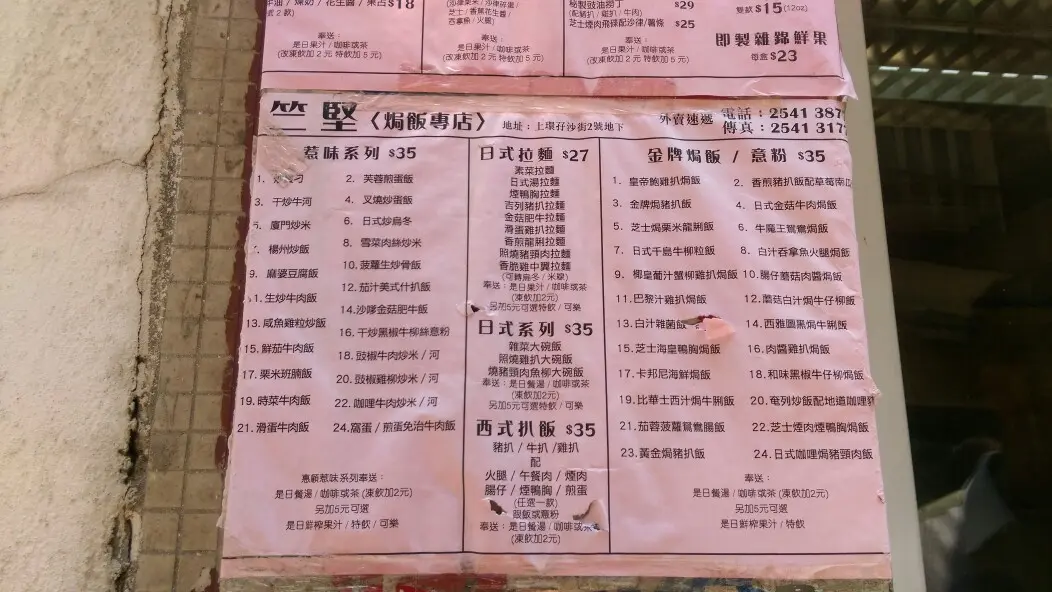 花生醬 / 果占 $18
芝士 / 香蕉花生醬
吞拿魚 / 火腿
奉送：
是日果汁 / 咖啡或茶
(改凍飲加2元 特飲加5元)
奉送：
是日果汁 / 咖啡或茶
(改凍飲加2元 特飲加5元)
秘製豉油撈丁 $29
(配豬扒 / 雞扒 / 牛肉)
芝士煙肉飛碟配沙律/薯條 $25
奉送：
是日果汁 / 咖啡或茶
(改凍飲加2元 特飲加5元)
$15 (12oz)
即製雜錦鮮果
每盒 $23
竺堅〈焗飯專店〉
地址：上環孖沙街2號地下
外賣速遞
電話：2541 387
傳真：2541 317
惹味系列 $35
2. 芙蓉煎蛋飯
3. 干炒牛河
4. 叉燒炒蛋飯
5. 廈門炒米
6. 日式炒烏冬
楊州炒飯
8. 雪菜肉絲炒米
9. 麻婆豆腐飯
10. 菠蘿生炒骨飯
11. 生炒牛肉飯
12. 茄汁美式什扒飯
13. 咸魚雞粒炒飯
14. 沙嗲金菇肥牛飯
15. 鮮茄牛肉飯
16. 干炒黑椒牛柳絲意粉
17. 栗米班腩飯
18. 豉椒牛肉炒米 / 河
19. 時菜牛肉飯
20. 豉椒雞柳炒米 / 河
21. 滑蛋牛肉飯
22. 咖喱牛肉炒米 / 河
24. 窩蛋 / 煎蛋免治牛肉飯
惠顧惹味系列奉送：
是日餐湯 / 咖啡或茶 (凍飲加2元)
另加5元可選
是日鮮榨果汁 / 特飲 / 可樂
日式拉麵 $27
素菜拉麵
日式湯拉麵
煙鴨胸拉麵
吉列豬扒拉麵
金菇肥牛拉麵
滑蛋雞扒拉麵
香煎龍脷拉麵
照燒豬頸肉拉麵
香脆雞中翼拉麵
奉送：是日果汁 / 咖啡或茶
(凍飲加2元)
另加5元可選特飲 / 可樂
日式系列 $35
雜菜大碗飯
照燒雞扒大碗飯
燒豬頸肉魚柳大碗飯
奉送：是日餐湯 / 咖啡或茶
(凍飲加2元)
另加5元可選特飲 / 可樂
西式扒飯 $35
豬扒 / 牛扒 / 雞扒
配
火腿 / 午餐肉 / 煙肉
腸仔 / 煙鴨胸 / 煎蛋
(任選一款)
跟飯或意粉
奉送：是日餐湯 / 咖啡或茶
(凍飲加2元)
金牌焗飯 / 意粉 $35
1. 皇帝鮑雞扒焗飯
2. 香煎豬扒飯配草莓南瓜
3. 金牌焗豬扒飯
4. 日式金菇牛肉焗飯
5. 芝士焗栗米龍脷飯
6. 牛魔王鴛鴦焗飯
7. 日式千島牛柳粒飯
8. 白汁吞拿魚火腿焗飯
9. 椰皇葡汁蟹柳雞扒焗飯
10. 腸仔蘑菇肉醬焗飯
11. 巴黎汁雞扒焗飯
12. 蘑菇白汁焗牛仔柳飯
13. 白汁雜菌飯
14. 西雅圖黑焗牛脷飯
15. 芝士海皇鴨胸焗飯
16. 肉醬雞扒焗飯
17. 卡邦尼海鮮焗飯
18. 和味黑椒牛仔柳焗飯
19. 比華士西汁焗牛脷飯
20. 奄列炒飯配地道咖喱
21. 茄蓉菠蘿鴛鴦腸飯
22. 芝士煙肉煙鴨胸焗飯
23. 黃金焗豬扒飯
24. 日式咖喱焗豬頸肉飯
奉送：
是日餐湯 / 咖啡或茶 (凍飲加2元)
另加5元可選
是日鮮榨果汁 / 特飲